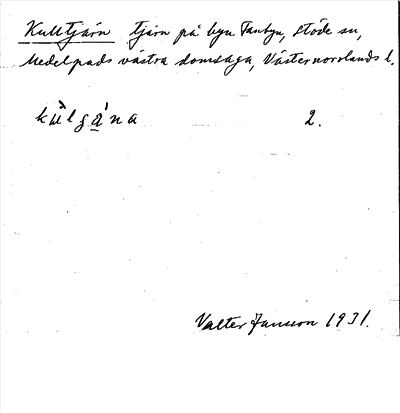 Kulltjärn tjärn på byn Fanbyn, Stöde sn,
Medelpads västra domsaga, Västernorrlands l.
kùlgána 2.
Valter Jansson 1931.